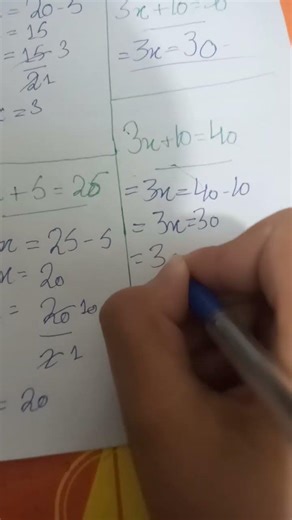 = 20-5
= 15
= 15 3
21
= 3
3x+10=
= 3x=30
3x+10=40
= 3x=40-10
= 3x=30
= 3
+ 5 = 25
x = 25-5
x = 20
= 20 10
2 1
= 20